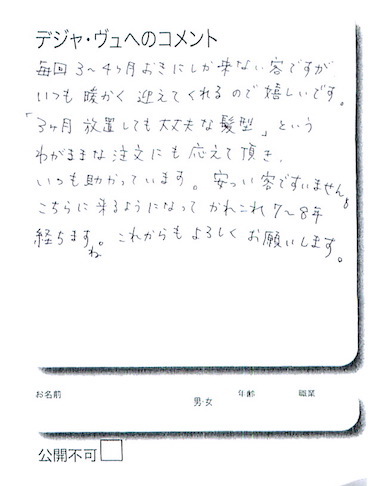 デジャ・ヴュへのコメント
毎回3〜4ヶ月おきにしか来ない客ですが
いつも暖かく迎えてくれるので嬉しいです。
「3ヶ月放置しても大丈夫な髪型」という
わがままな注文にも応えて頂き、
いつも助かっています。安っい客ですいません。
こちらに来るようになってかれこれ7〜8年
経ちますね。これからもよろしくお願いします。
お名前 男・女 年齢 職業
公開不可